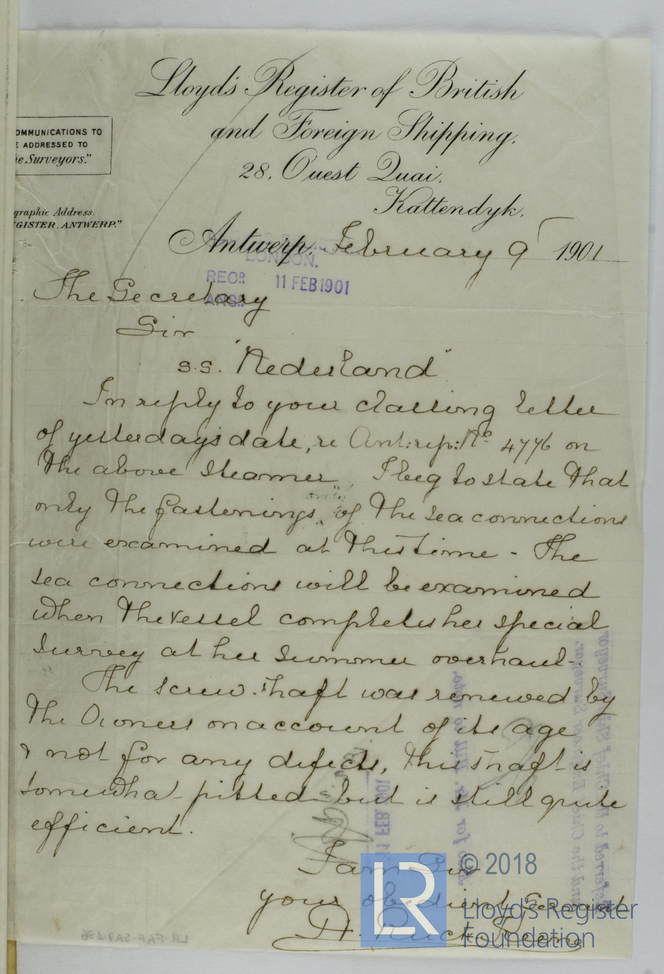 Lloyd's Register of British
and Foreign Shipping.
28, Ouest Quai.
Kattendyk.
OMMUNICATIONS TO
E ADDRESSED TO
e Surveyors."
graphic Address.
GISTER, ANTWERP."
Antwerp, February 9 1901
LONDON.
RECD. 11 FEB 1901
The Secretary
Sir
s.s. "Nederland"
In reply to your classing letter
of yesterday's date, re Ant: rep: No 4776 on
the above steamer, I beg to state that
only the fastenings of the sea connections
were examined at this time - The
sea connections will be examined
when the vessel completes her special
survey at her summer overhaul -
The screw shaft was renewed by
the Owners on account of its age
& not for any defects, this shaft is
somewhat pitted but is still quite
efficient.
I am Sir
your obedient Servant
© 2018
LR
Lloyd's Register
Foundation
LR-FAF-SA7-236